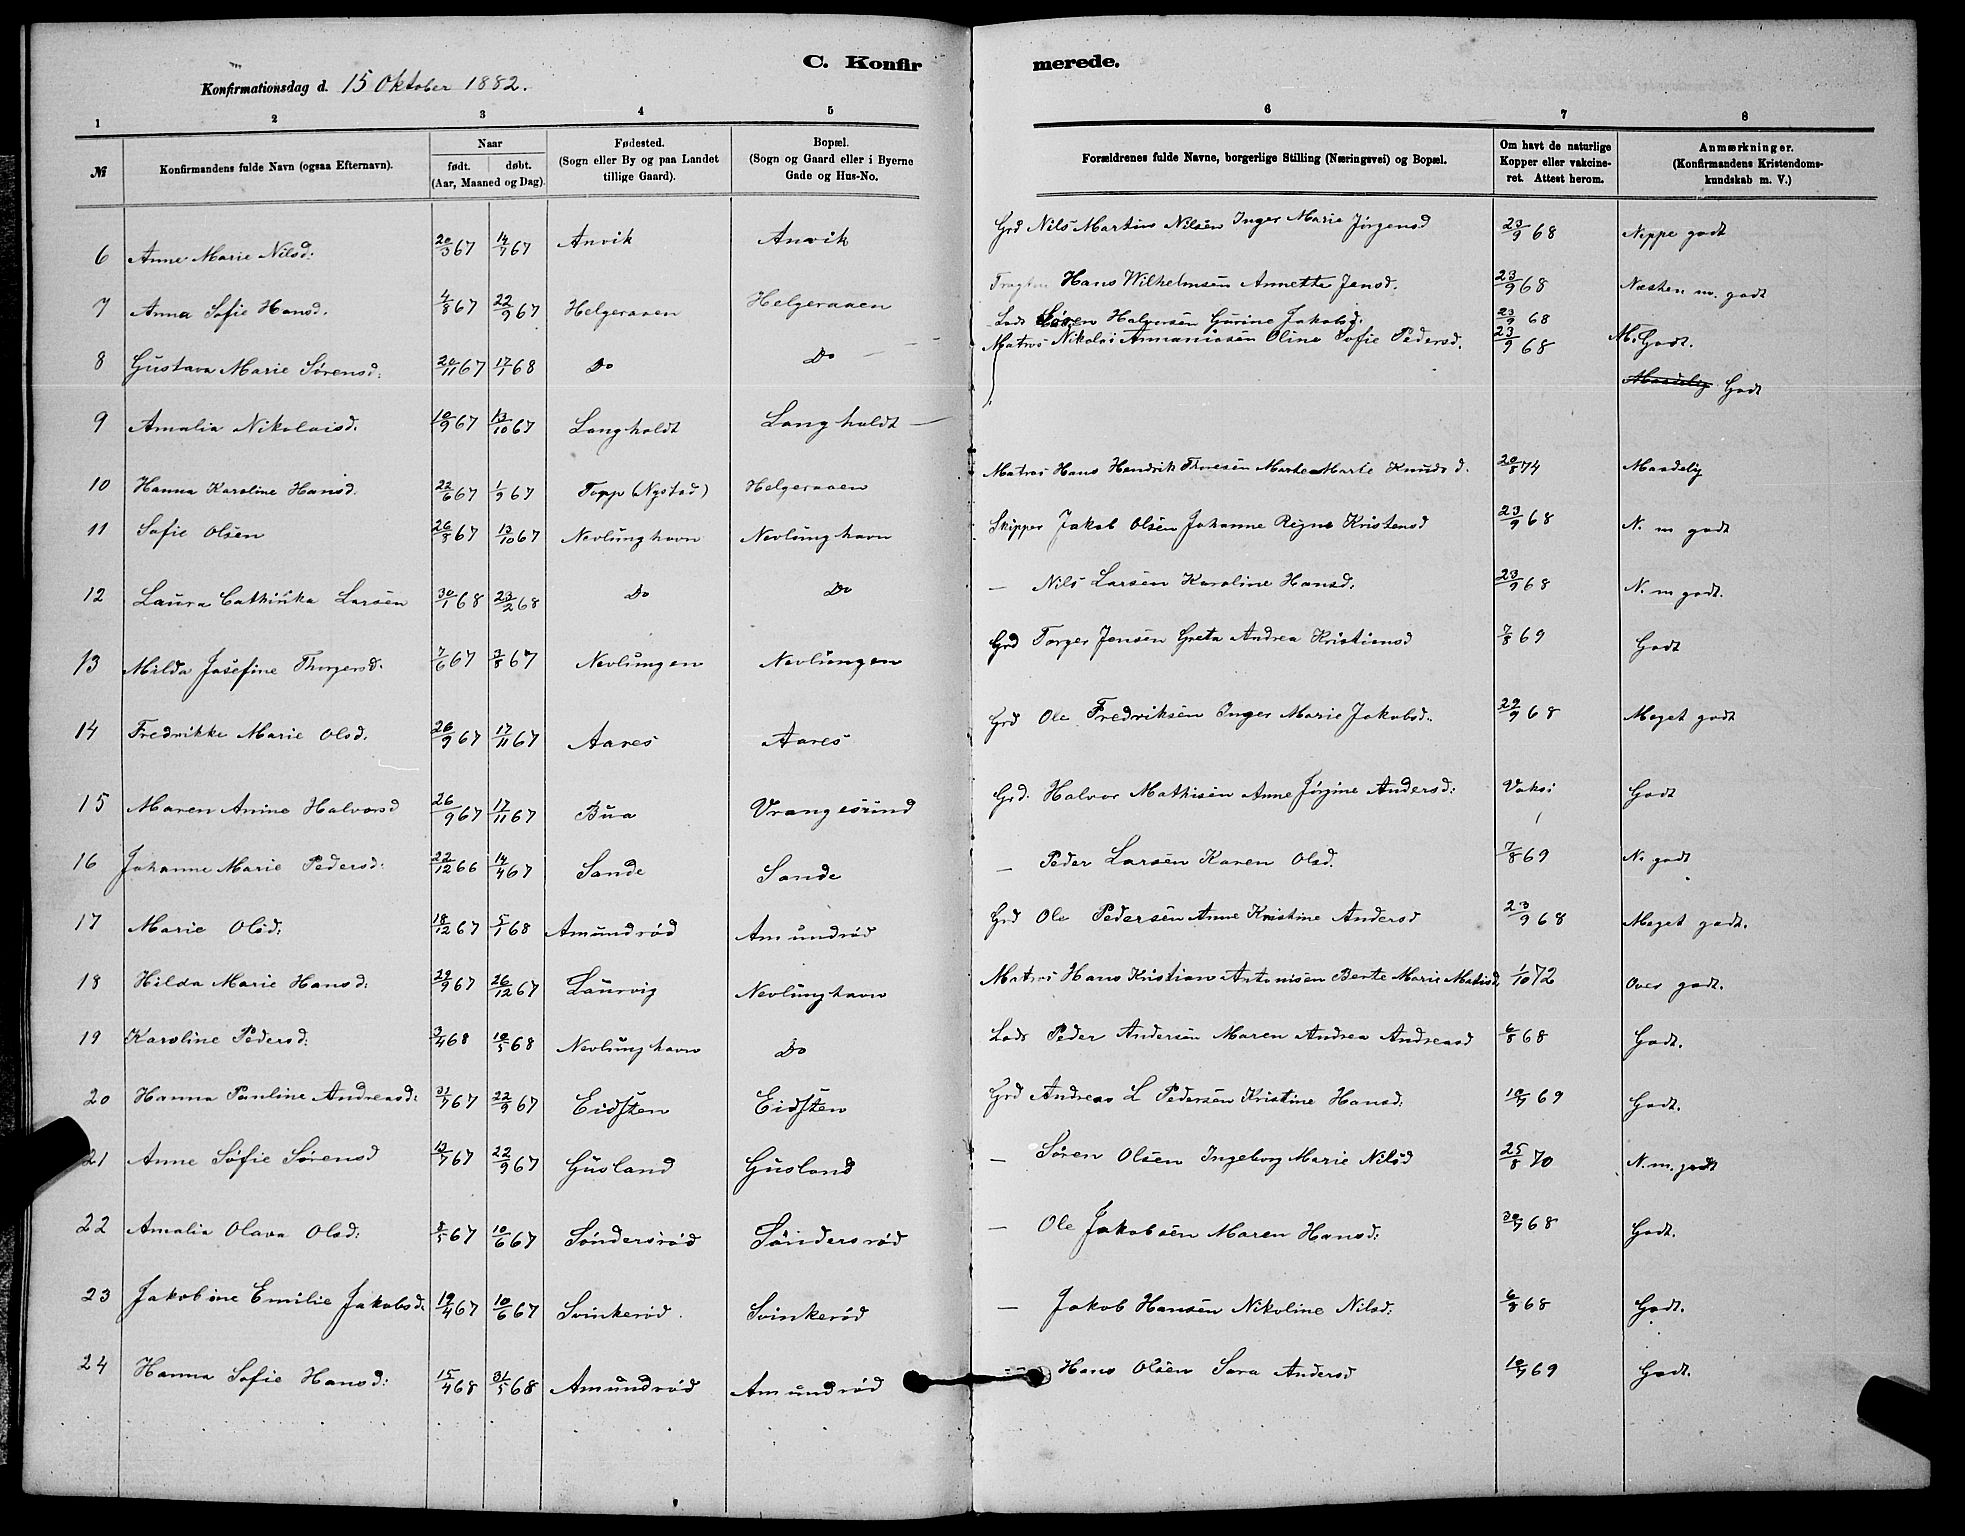 C. Konfirmerede.
Konfirmationsdag d. 15 Oktober 1882.
1 2 3 4 5 6 7 8
№ | Konfirmandens fulde Navn (ogsaa Efternavn). | Naar født. døbt. (Aar, Maaned og Dag). | Fødested. (Sogn eller By og paa Landet tillige Gaard). | Bopæl. (Sogn og Gaard eller i Byerne Gade og Hus-No. | Forældrenes fulde Navne, borgerlige Stilling (Næringsvei) og Bopæl. | Om havt de naturlige Kopper eller vakcineret. Attest herom. | Anmærkninger. (Konfirmandens Kristendomskundskab m. V.)
6 Anne Marie Nilsd: 20/3 67 14/7 67 Anvik Anvik Grd Nils Martins Nilsen Inger Marie Jørgensd 23/9 68 Neppe godt
7 Anna Sofie Hansd. 4/8 67 22/9 67 Helgeraaen Helgeraaen Hans Wilhelmsen Annette Jensd. 23/9 68 Næsten m. godt
8 Gustava Marie Sørensd: 20/11 67 17/1 68 Do Do Lods Søren Halvorsen Gurine Jakobsd: 23/9 68 M. Godt.
9 Amalia Nikolaisd. 10/9 67 13/10 67 Langholdt Langholdt Matros Nikolai Annaniasen Oline Sofie Pedersd. 23/9 68 Maadelig Godt
10 Hanna Karoline Hansd. 22/6 67 1/9 67 Topp (Nystad) Helgeraaen Matros Hans Hendrik Thoresen Marte Marie Knudsd. 20/8 74 Maadelig
11 Sofie Olsen 26/8 67 13/10 67 Nevlunghavn Nevlunghavn Skipper Jakob Olsen Johanne Regine Kristensd 23/9 68 N. m godt
12 Laura Cathinka Larsen 30/1 68 23/2 68 Do Do — Nils Larsen Karoline Hansd. 23/9 68 N. m godt.
13 Milda Josefine Thorgersd. 7/6 67 3/8 67 Nevlungen Nevlungen Grd Torger Jensen Greta Andrea Kristiansd 7/8 69 Godt
14 Fredrikke Marie Olsd. 26/9 67 17/11 67 Aares Aares Grd Ole Fredriksen Inger Marie Jakobsd. 22/9 68 Meget godt
15 Maren Anine Halvorsd 26/9 67 17/11 67 Bua Vrangesund Grd. Halvor Mathisen Anne Jørgine Andersd: Vaksi Godt
16 Johanne Marie Pedersd: 22/12 66 14/4 67 Sande Sande — Peder Larsen Karen Olsd. 7/8 69 N. godt
17 Marie Olsd: 18/12 67 5/1 68 Amundrød Amundrød Grd Ole Pedersen Anne Kristine Andersd 23/9 68 Meget godt.
18 Hilda Marie Hansd: 29/9 67 26/12 67 Laurvig Nevlunghavn Matros Hans Kristian Antonisen Berte Marie Matisd. 1/10 72 Over godt.
19 Karoline Pedersd: 3/4 68 10/5 68 Nevlunghavn Do Lods Peder Andersen Maren Andrea Andreasd 6/8 68 Godt.
20 Hanna Pauline Andreasd: 31/7 67 22/9 67 Eidsten Eidsten Grd Andreas L Pedersen Kristine Hansd: 10/7 69 Godt.
21 Anne Sofie Sørensd 13/7 67 22/9 67 Gusland Gusland — Søren Olsen Ingeborg Marie Nilsd 25/8 70 N. m. godt
22 Amalia Olava Olsd: 8/5 67 10/6 67 Søndersrød Søndersrød — Ole Jakobsen Maren Hansd: 30/7 68 Godt.
23 Jakobine Emilie Jakobsd: 19/4 67 10/6 67 Svinkerød Svinkerød — Jakob Hansen Nikoline Nilsd: 6/8 68 Godt.
24 Hanna Sofie Hansd: 15/4 68 31/5 68 Amundrød Amundrød — Hans Olsen Sara Andersd 10/7 69 Godt.